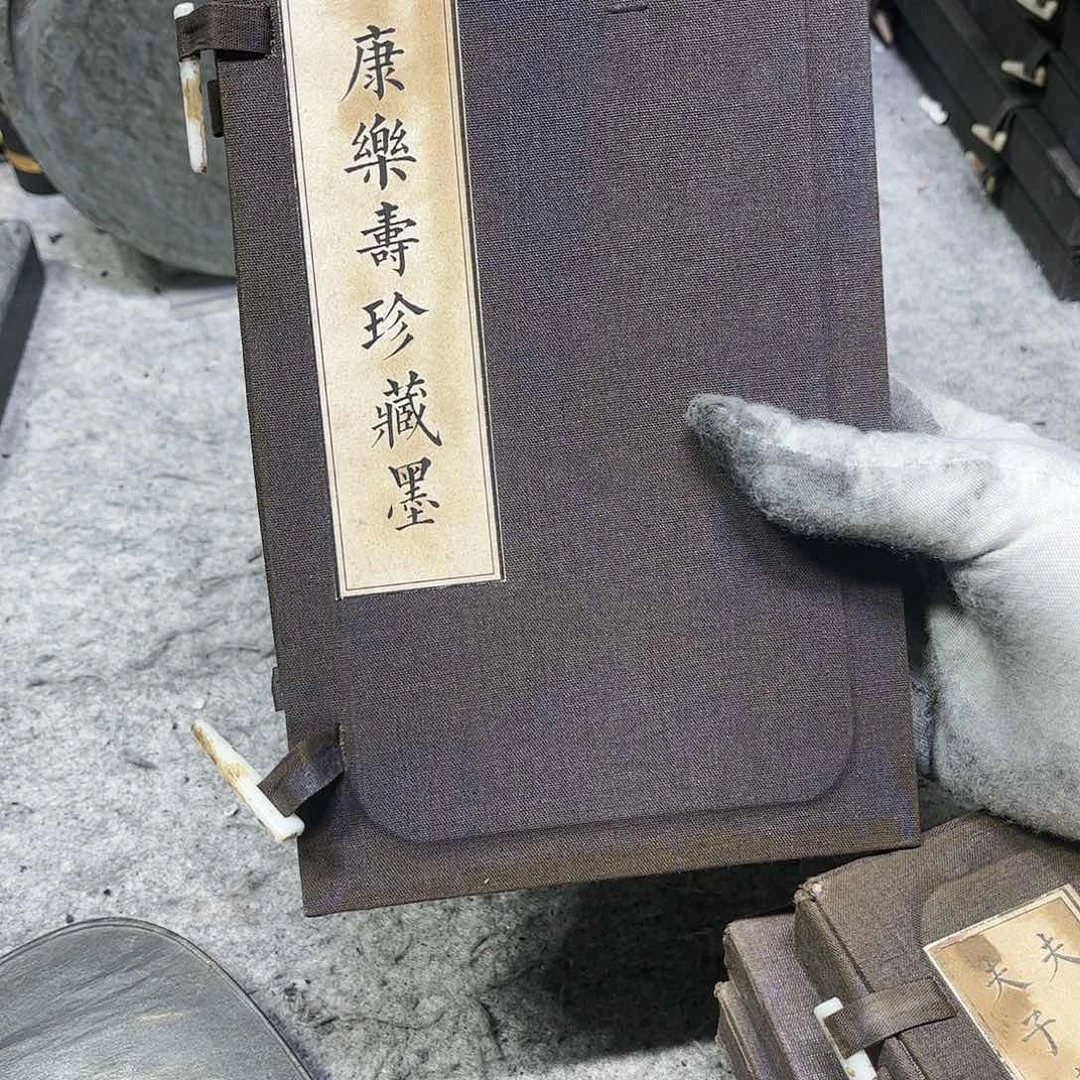 康樂壽珍藏墨
夫
夫子